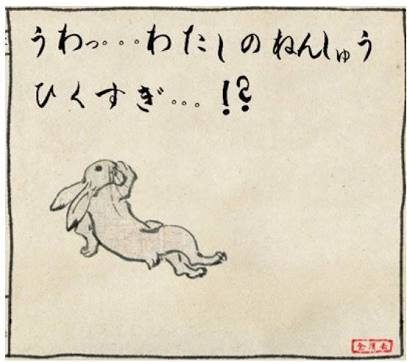 うわっ・・・わたしのねんしゅう
ひくすぎ・・・!?